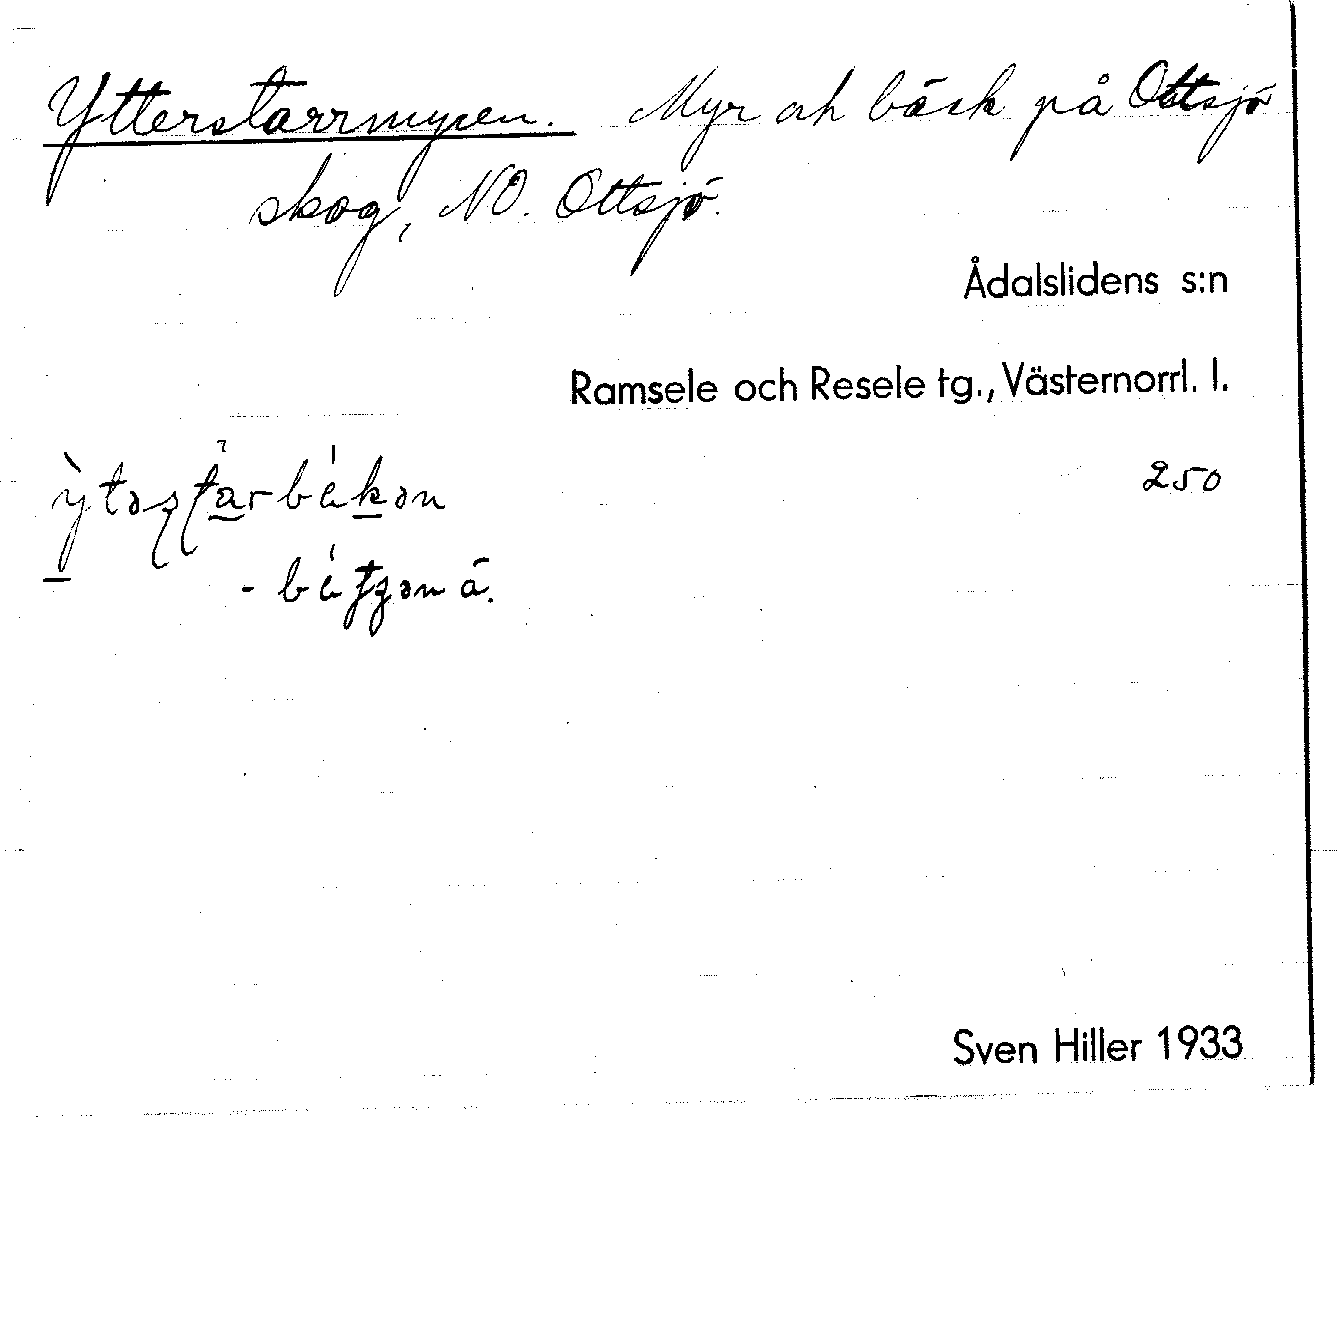 Ytterstarrmyren. Myr och bäck på Ottsjö
skog, NO. Ottsjö.
Ådalslidens s:n
Ramsele och Resele tg., Västernorrl. l.
250
Sven Hiller 1933